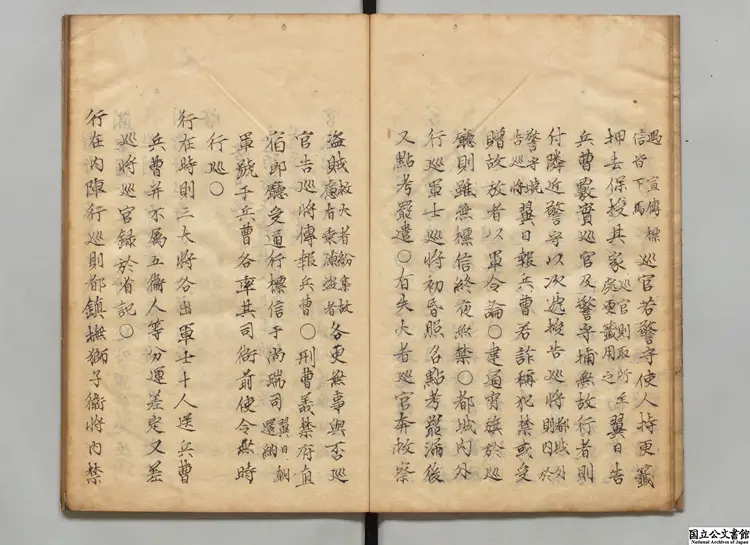 遇宣傳標信皆下馬巡官若警守使人持更籤
押去保授其家巡官則取所在處更籤用之翼日告
兵曹覈實巡官及警守捕無故行者則
付隣近警守以次遞授告巡將都城外則內於
警守曉告巡將翼日報兵曹若詐稱犯禁或受
贈故放者以軍令論○建通宵旗於巡
廳則雖無標信終夜無禁○都城內外
行巡軍士巡將初昏照名點考罷漏後
又點考罷遣○有失火者巡官奔救察
盜賊救火者紛集故慮有乘隙盜者各更無事與否巡
官告巡將傳報兵曹○刑曹義禁府直
宿郎廳受通行標信于尚瑞司翼日朝還納
軍號于兵曹各率其司衙前使令無時
行巡○
行在時則三大將各出軍士十人送兵曹
兵曹并不屬五衛人等分運差定又差
巡將巡官録於省記○
行在內陣行巡則都鎮撫獅子衛將內禁
国立公文書館
National Archives of Japan